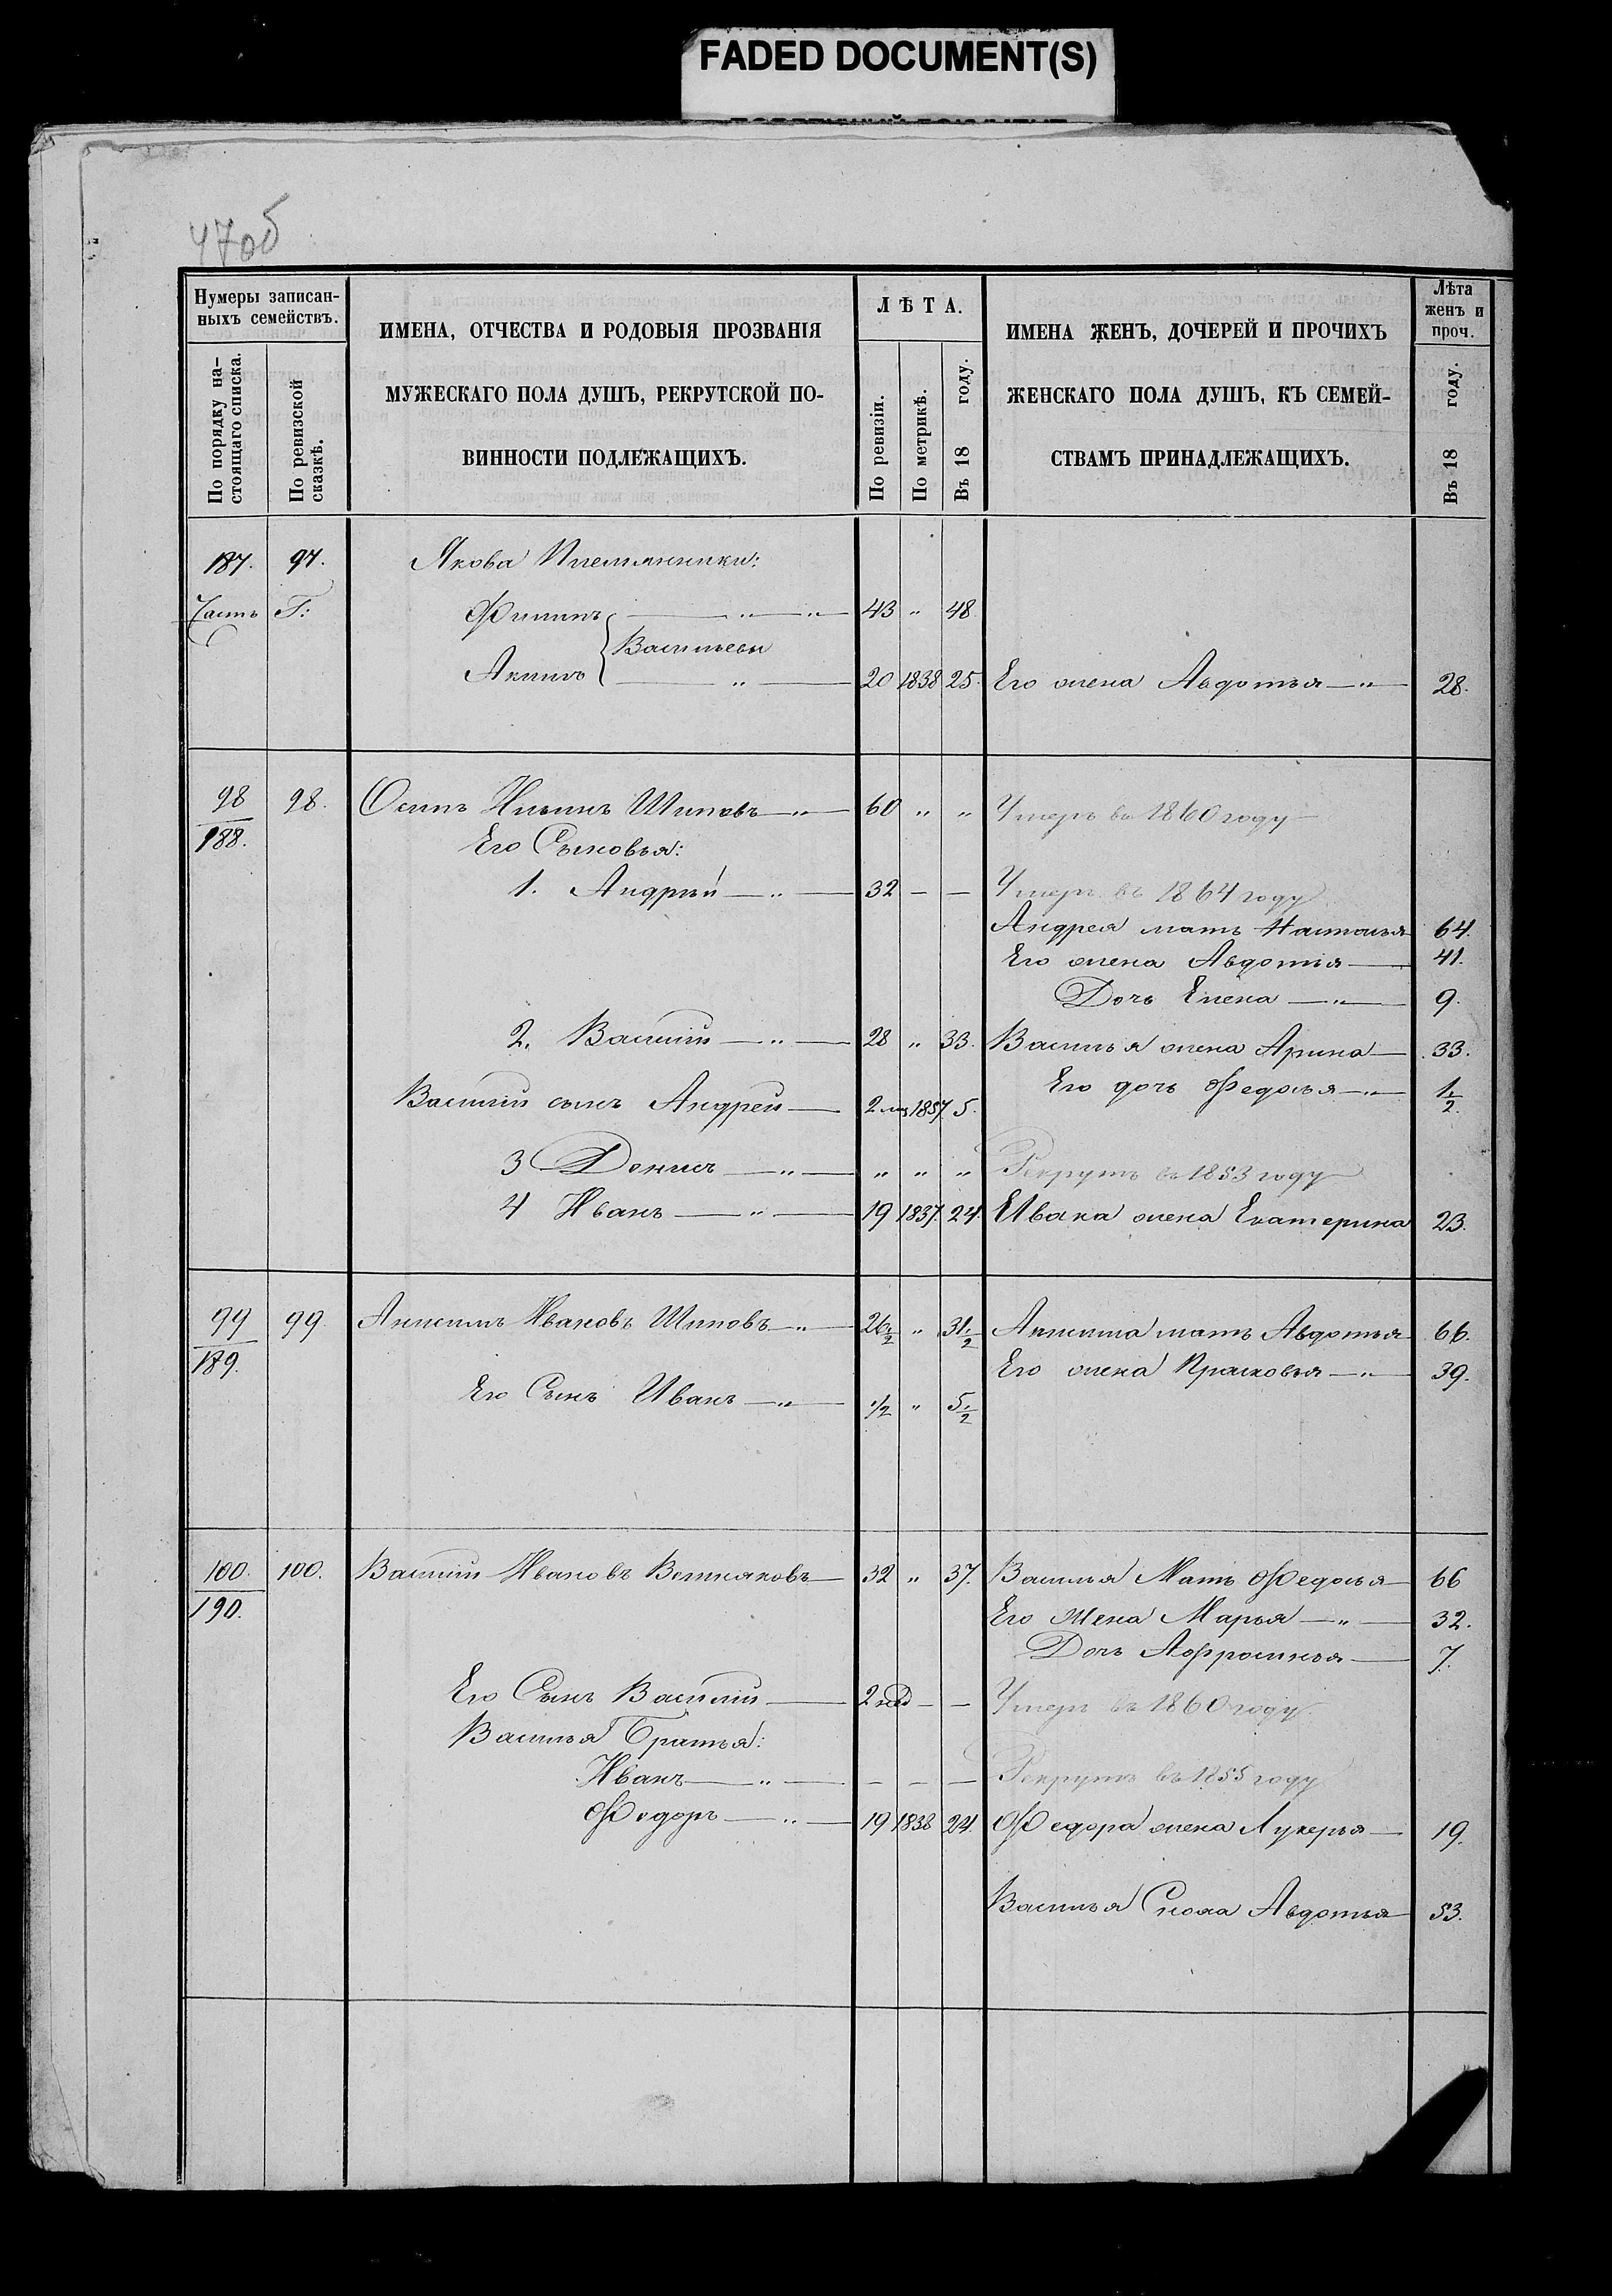 FADED DOCUMENT(S)
47об
Нумеры записан-
ныхъ семействъ.
По порядку на-
стоящаго списка.
По ревизской
сказкѣ.
ИМЕНА, ОТЧЕСТВА И РОДОВЫЯ ПРОЗВАНІЯ
МУЖЕСКАГО ПОЛА ДУШЪ, РЕКРУТСКОЙ ПО-
ВИННОСТИ ПОДЛЕЖАЩИХЪ.
ЛѢТА.
По ревизіи.
По метрикѣ.
Въ 18 году.
ИМЕНА ЖЕНЪ, ДОЧЕРЕЙ И ПРОЧИХЪ
ЖЕНСКАГО ПОЛА ДУШЪ, КЪ СЕМЕЙ-
СТВАМЪ ПРИНАДЛЕЖАЩИХЪ.
Лѣта
женъ и
проч.
Въ 18 году.
187. 97. Якова Племянники:
Часть Г: Филипъ — " — " 43 " 48
Васильевы
Акимъ — " — 20 1838 25. Его жена Авдотья — " — 28.
98 98. Осипъ Ильинъ Шиповъ — " — 60 " " Умеръ въ 1860 году
188. Его Сыновья:
1. Андрей — " — 32 — — Умеръ въ 1864 году
Андрея мать Настасья 64.
Его жена Авдотья — 41.
Дочь Елена — " — 9.
2. Василій — " — 28 " 33. Василья жена Арина — 33.
Его дочь Федосья — " — 1/2.
Василій сынъ Андрей — 2 мѣ 1857 5.
3 Денисъ — " — " " " Рекрутъ въ 1853 году
4 Иванъ — " — 19 1837. 24. Ивана жена Екатерина 23.
99 99. Анисимъ Ивановъ Шиповъ — " — 26 1/2 " 31 1/2 Анисима мать Авдотья 66.
189. Его жена Прасковья — " — 39.
Его Сынъ Иванъ — " — 1/2 " 5 1/2
100. 100. Василій Ивановъ 32 " 37. Василья Мать Федосья 66
190. Его Жена Марья — " — 32.
Дочь Афросинья — 7.
Его Сынъ Василій — 2 нед — — Умеръ въ 1860 году.
Василья Братья:
Иванъ — " — — — — Рекрутъ въ 1855 году
Федоръ — " — 19 1838 24. Федора жена Лукерья — 19.
Василья Сноха Авдотья 53.